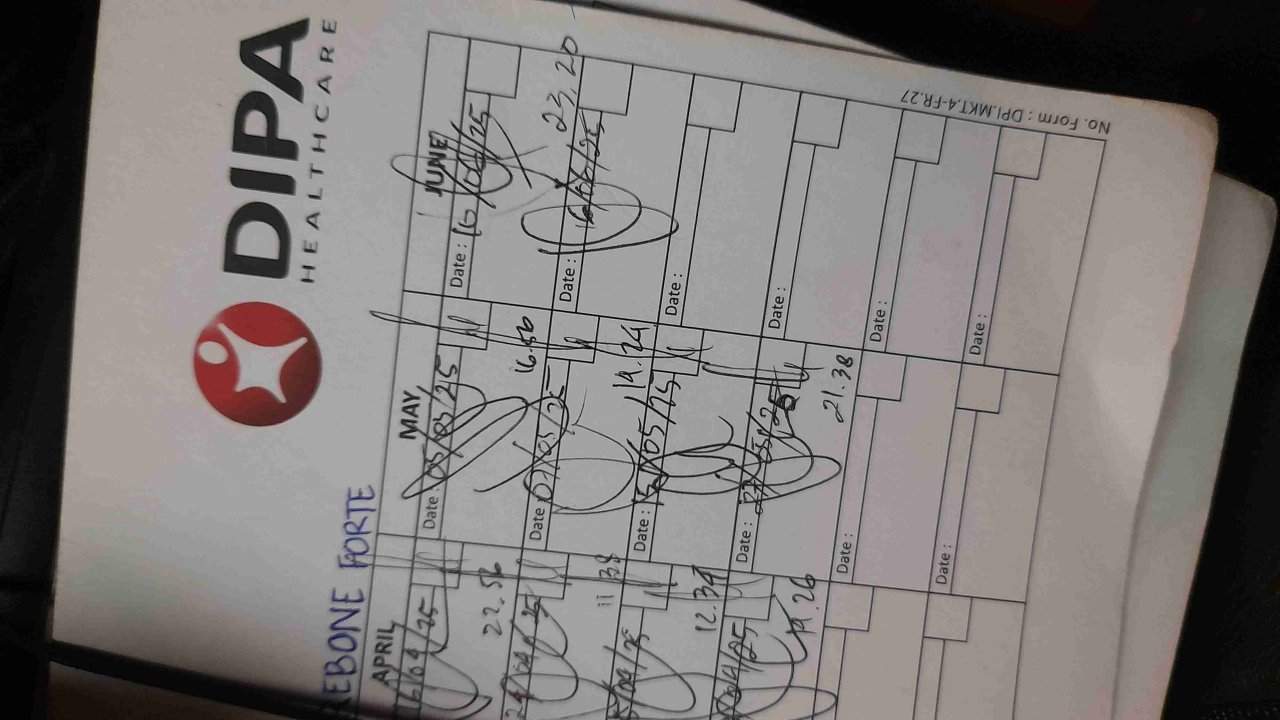 DIPA
HEALTHCARE
REBONE FORTE
APRIL
MAY
JUNE
16/04/25
Date : 05/05/25
Date : 16/06/25
22.56
16.56
23.20
24/04/25
Date 07/05/25
Date : 16/06/25
11 38
14.24
/04/25
Date : 15/05/25
Date :
12.34
/04/25
Date : 27/05/25
Date :
19.26
21.38
Date :
Date :
Date :
Date :
No. Form : DPI.MKT.4-FR.27